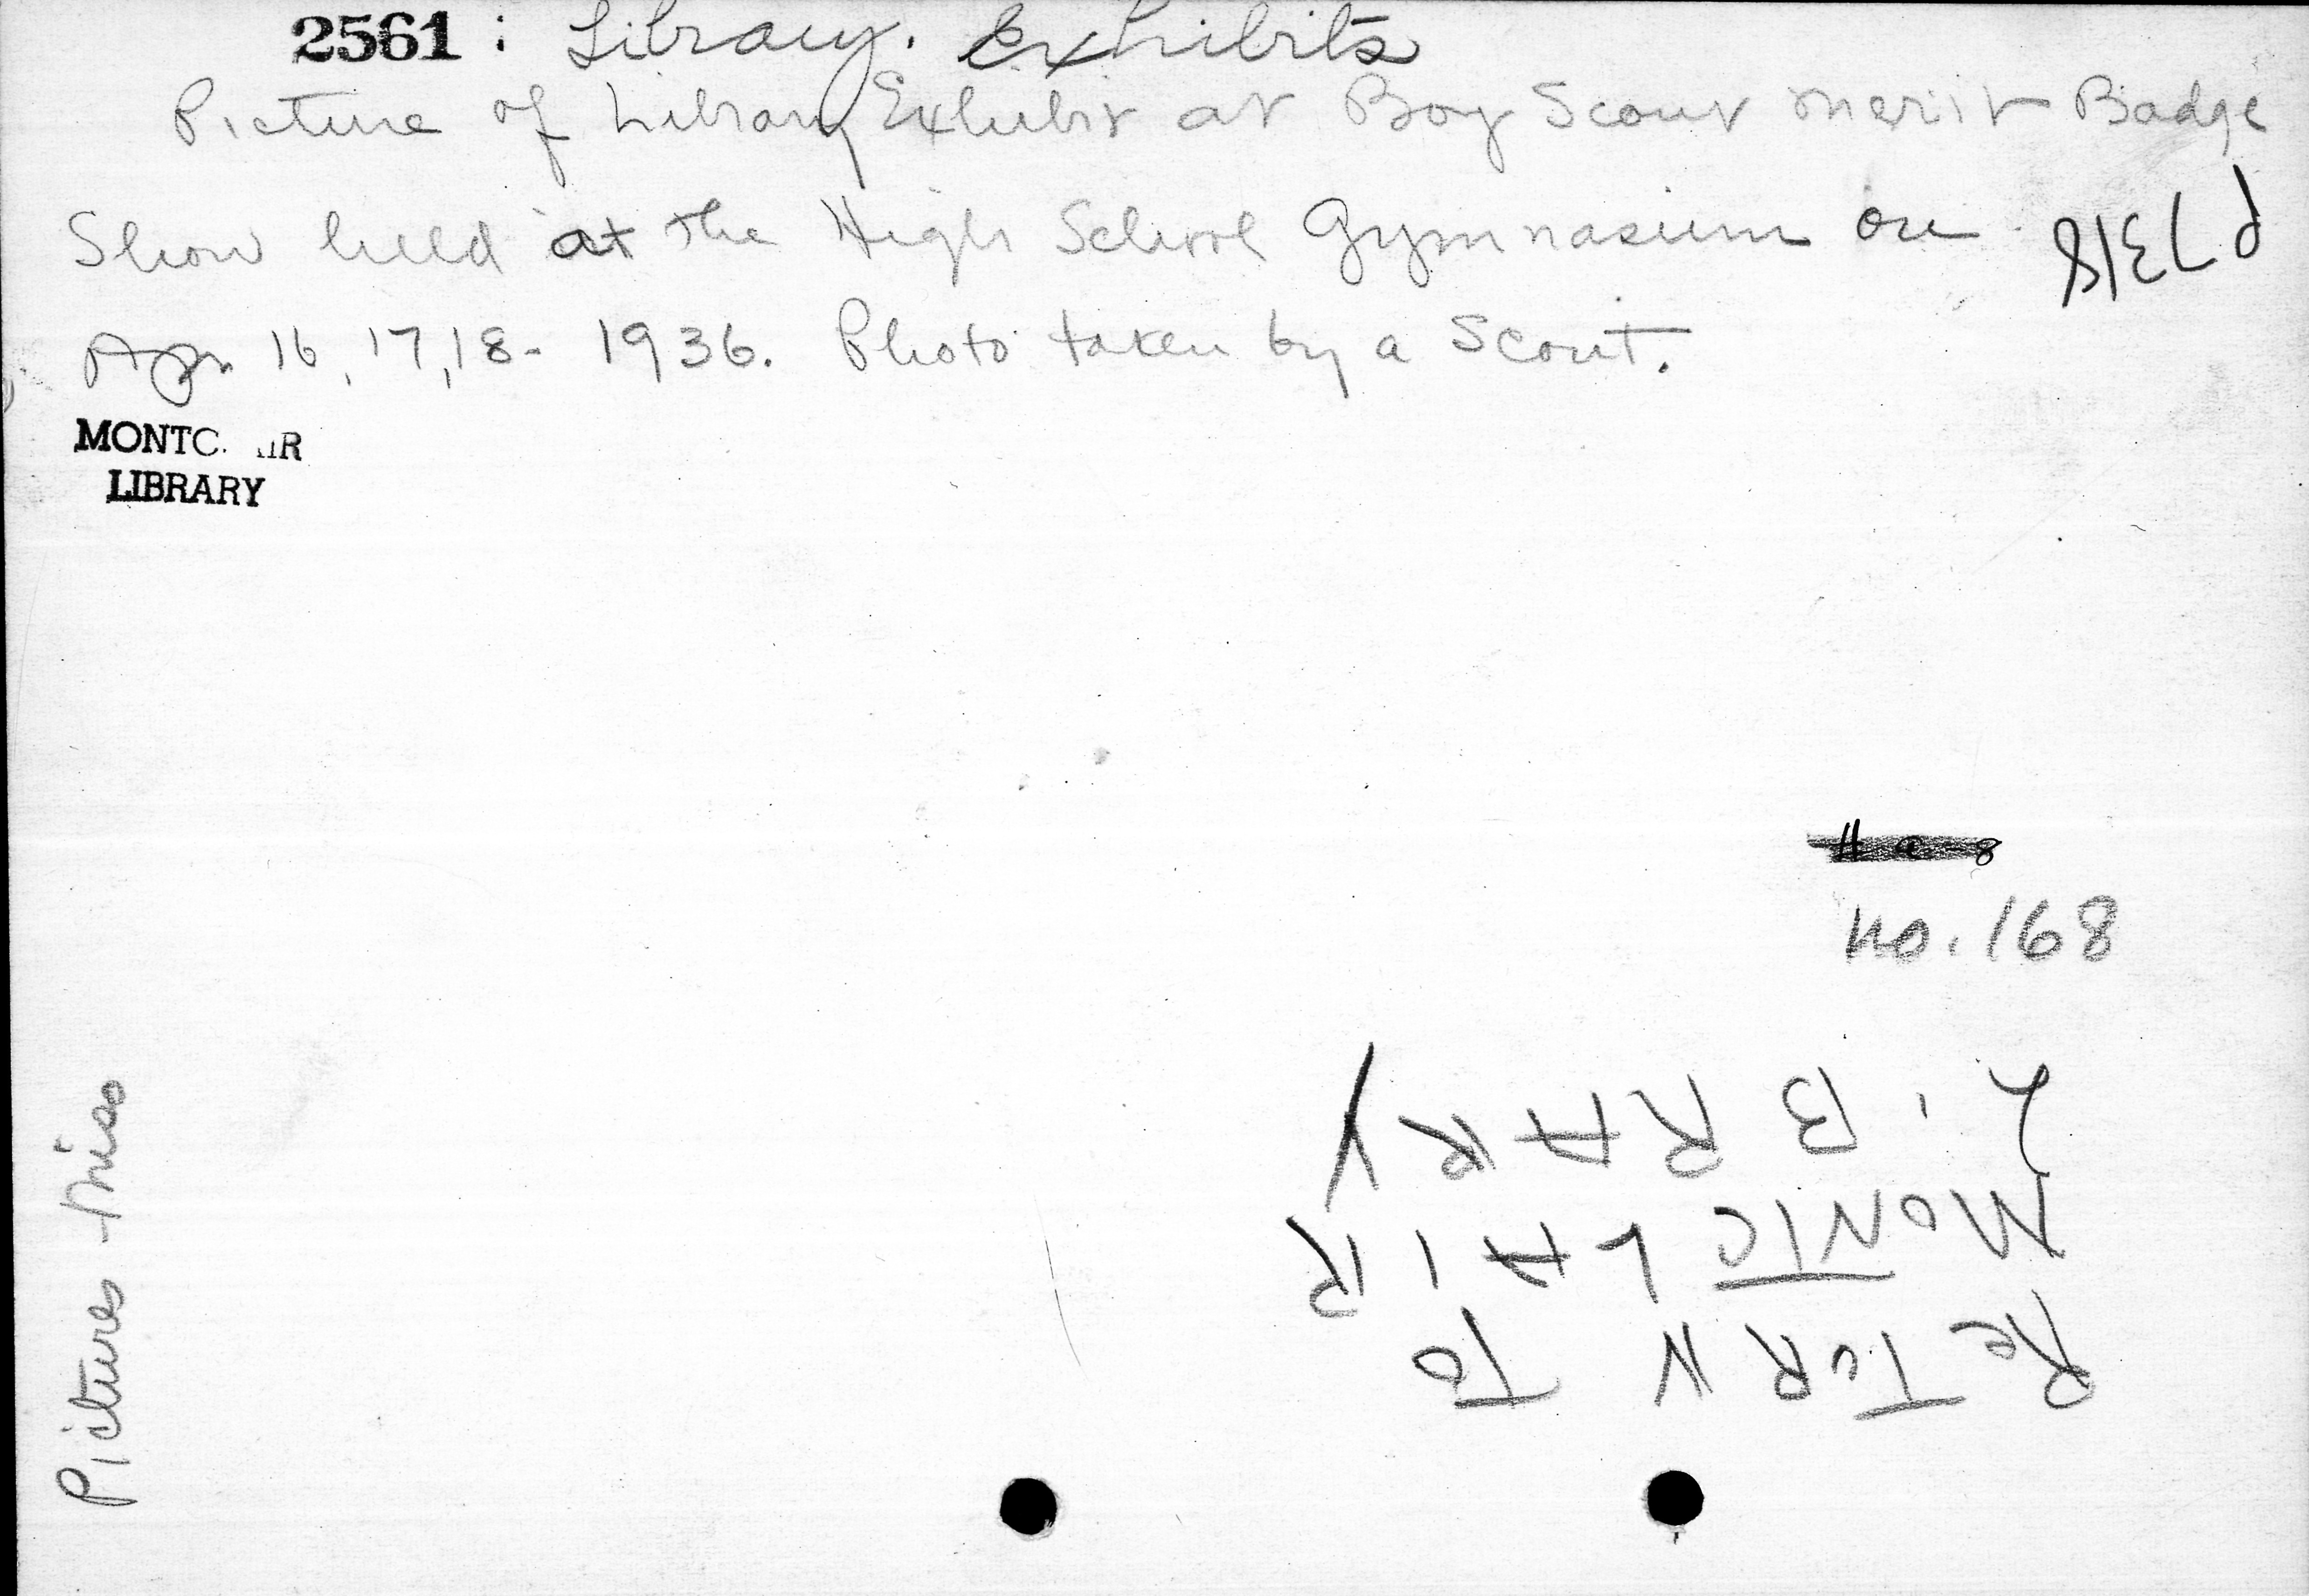 2561 : Library. Exhibits
Picture of Library Exhibit at Boy Scout Merit Badge
Show held at the High School Gymnasium on
Apr 16, 17, 18 - 1936. Photo taken by a Scout.
P7318
MONTC IR
LIBRARY
no. 168
ReTURN TO
MONTCLAIR
LiBRARY
Pictures - Misc